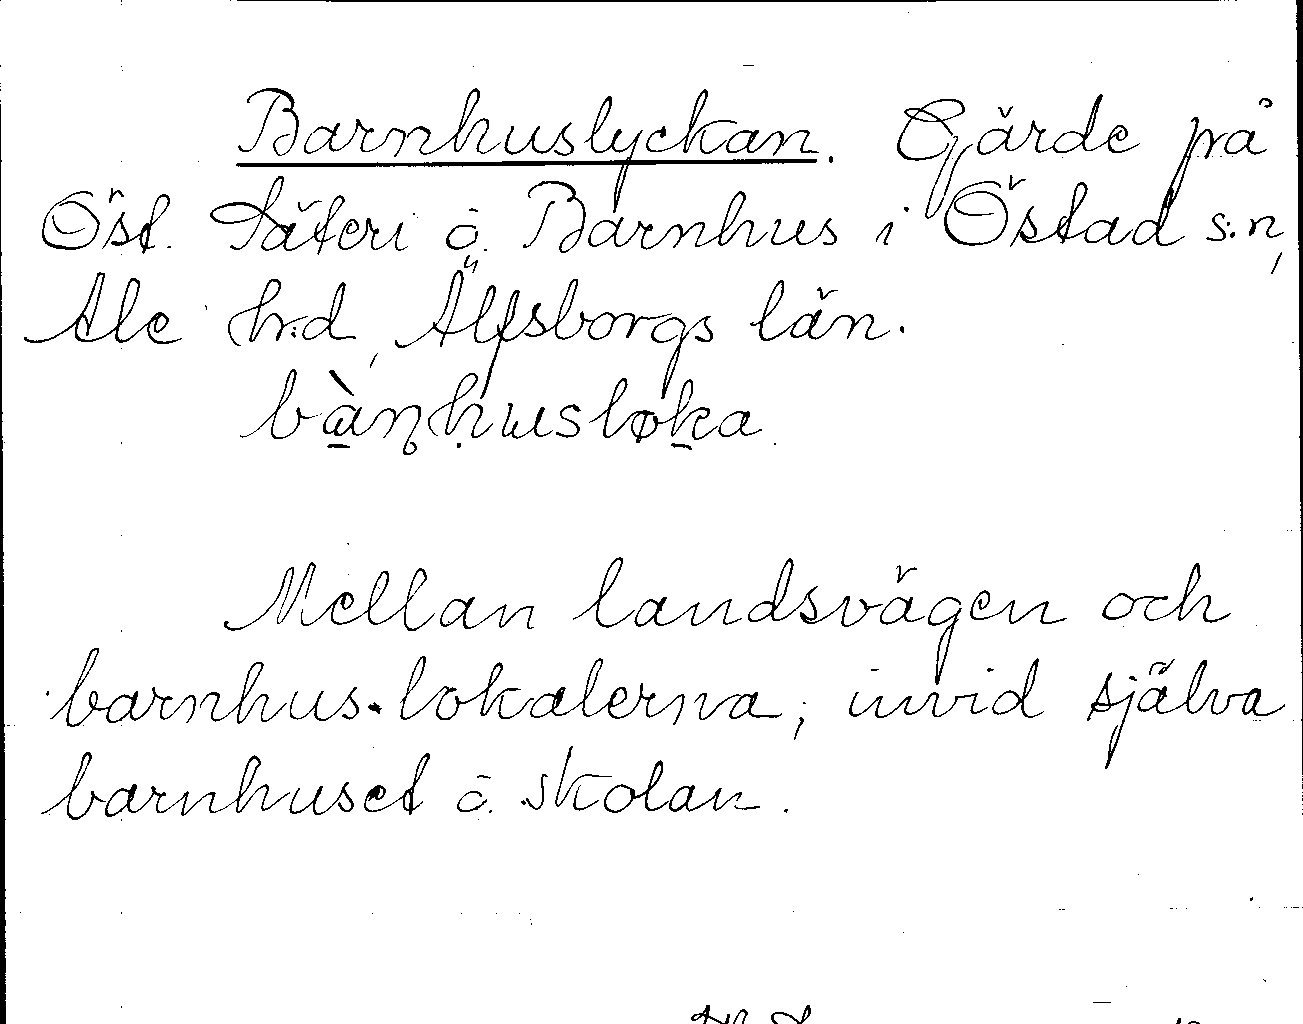 Barnhuslyckan. Gärde på
Öst. Säteri o. Barnhus i Östad s:n,
Ale h:d, Älfsborgs län.
bà̱ɳhusløḵa
Mellan landsvägen och
barnhus-lokalerna, invid själva
barnhuset o. skolan.